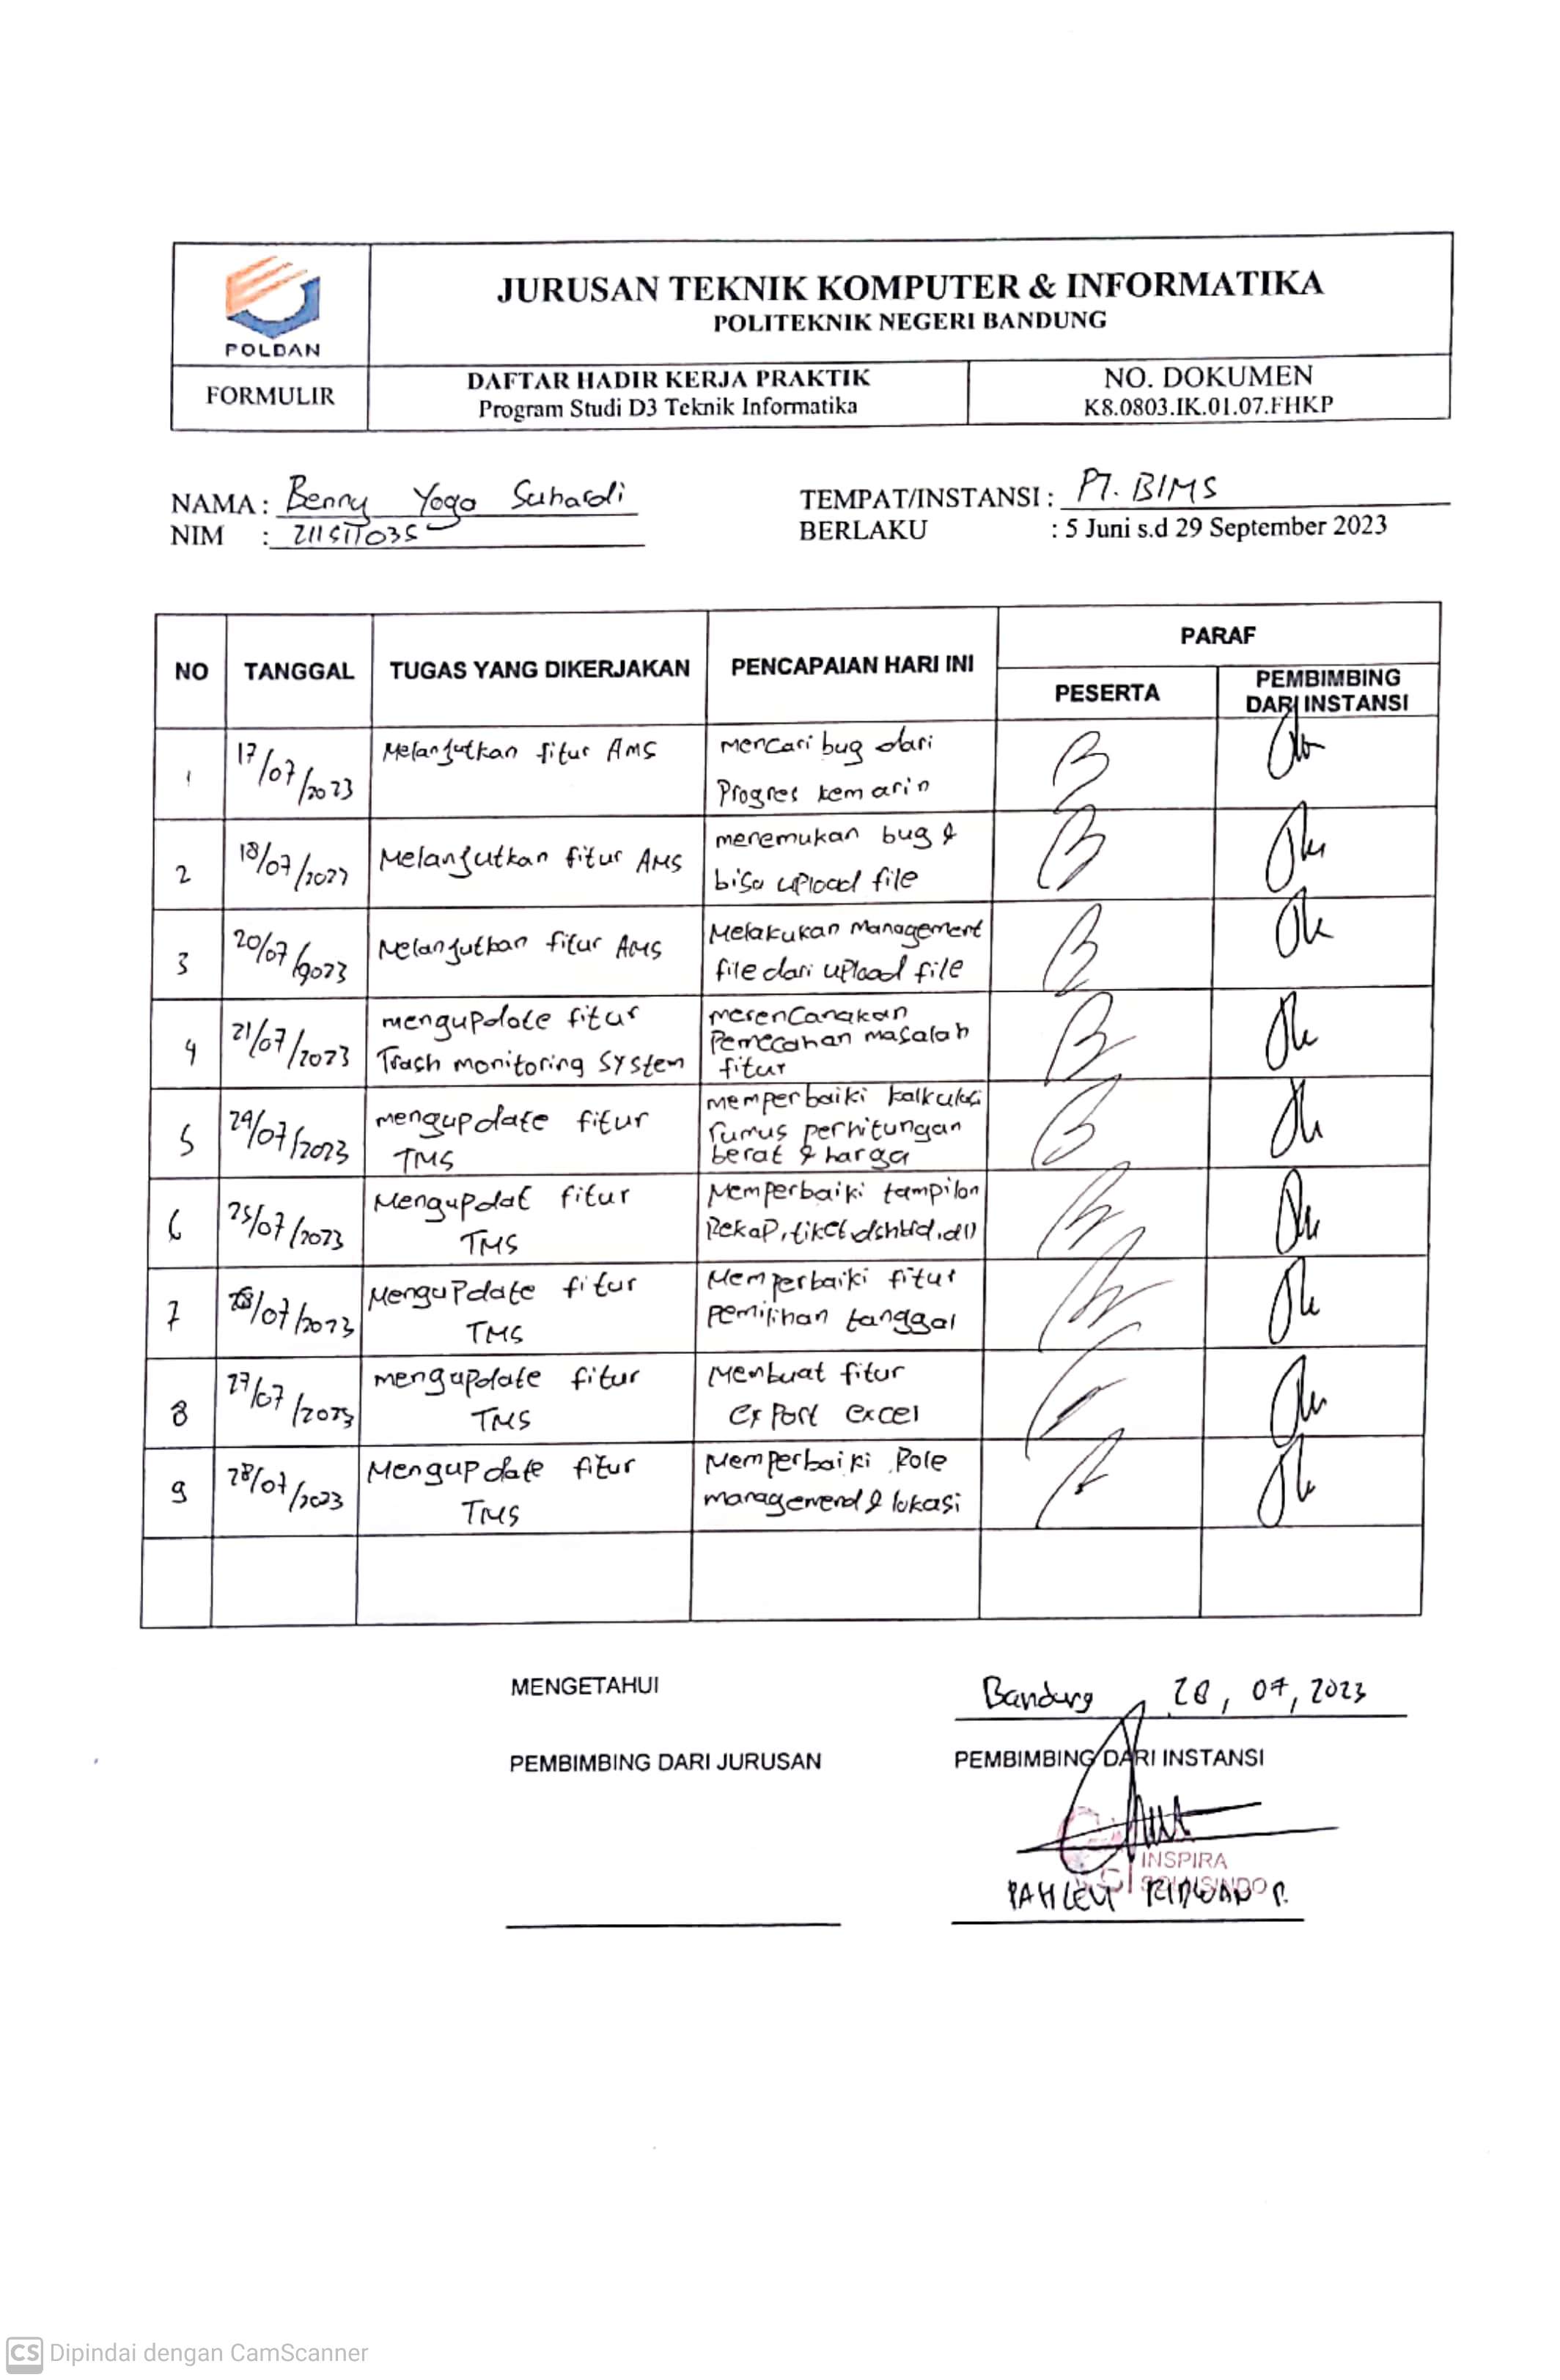 POLBAN
JURUSAN TEKNIK KOMPUTER & INFORMATIKA
POLITEKNIK NEGERI BANDUNG
FORMULIR
DAFTAR HADIR KERJA PRAKTIK
Program Studi D3 Teknik Informatika
NO. DOKUMEN
K8.0803.IK.01.07.FHKP
NAMA : Benny Yoga Suhardi
NIM :
TEMPAT/INSTANSI : PT. BIMS
BERLAKU : 5 Juni s.d 29 September 2023
NO TANGGAL TUGAS YANG DIKERJAKAN PENCAPAIAN HARI INI PARAF
PESERTA PEMBIMBING DARI INSTANSI
1 17/07/2023 Melanjutkan fitur AMS mencari bug dari
Progres kemarin
2 18/07/2023 Melanjutkan fitur AMS menemukan bug &
bisa upload file
3 20/07/2023 Melanjutkan fitur AMS Melakukan Management
file dari upload file
4 21/07/2023 mengupdate fitur
Trash monitoring System
merencanakan
Pemecahan masalah
fitur
5 24/07/2023 mengupdate fitur
TMS
memperbaiki kalkulasi
rumus perhitungan
berat & harga
6 25/07/2023 Mengupdat fitur
TMS
Memperbaiki tampilan
Rekap, tiket, dshbrd, dll
7 /07/2023 Mengupdate fitur
TMS
Memperbaiki fitur
pemilihan tanggal
8 27/07/2023 mengupdate fitur
TMS
Membuat fitur
export excel
9 28/07/2023 Mengupdate fitur
TMS
Memperbaiki Role
management & lokasi
MENGETAHUI
Bandung, 28, 07, 2023
PEMBIMBING DARI JURUSAN
PEMBIMBING DARI INSTANSI
INSPIRA
SOLUSINDO
PAHLEVI RIDWAN P.
CS Dipindai dengan CamScanner